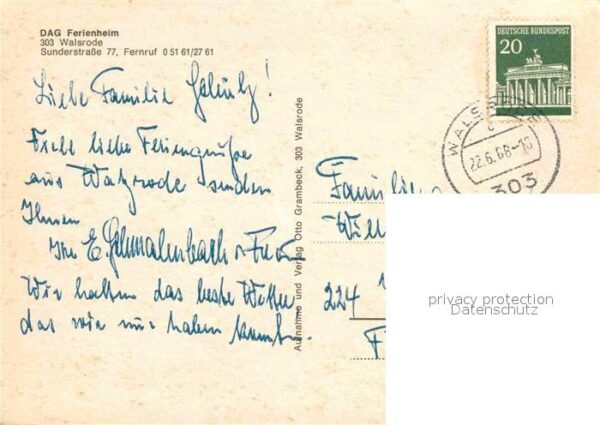 DAG Ferienheim
303 Walsrode
Sunderstraße 77, Fernruf 0 51 61/27 61
Liebe Familie
liebe Feriengrüße
aus Walsrode senden
Ihnen
Ihr E. Schmalenbach u. Frau
Wir hatten das beste Wetter
das wir nur haben konnten.
Aufnahme und Verlag Otto Grambeck, 303 Walsrode
DEUTSCHE BUNDESPOST
20
WALSRODE
22.6.68-18
303
Familie
224
privacy protection
Datenschutz